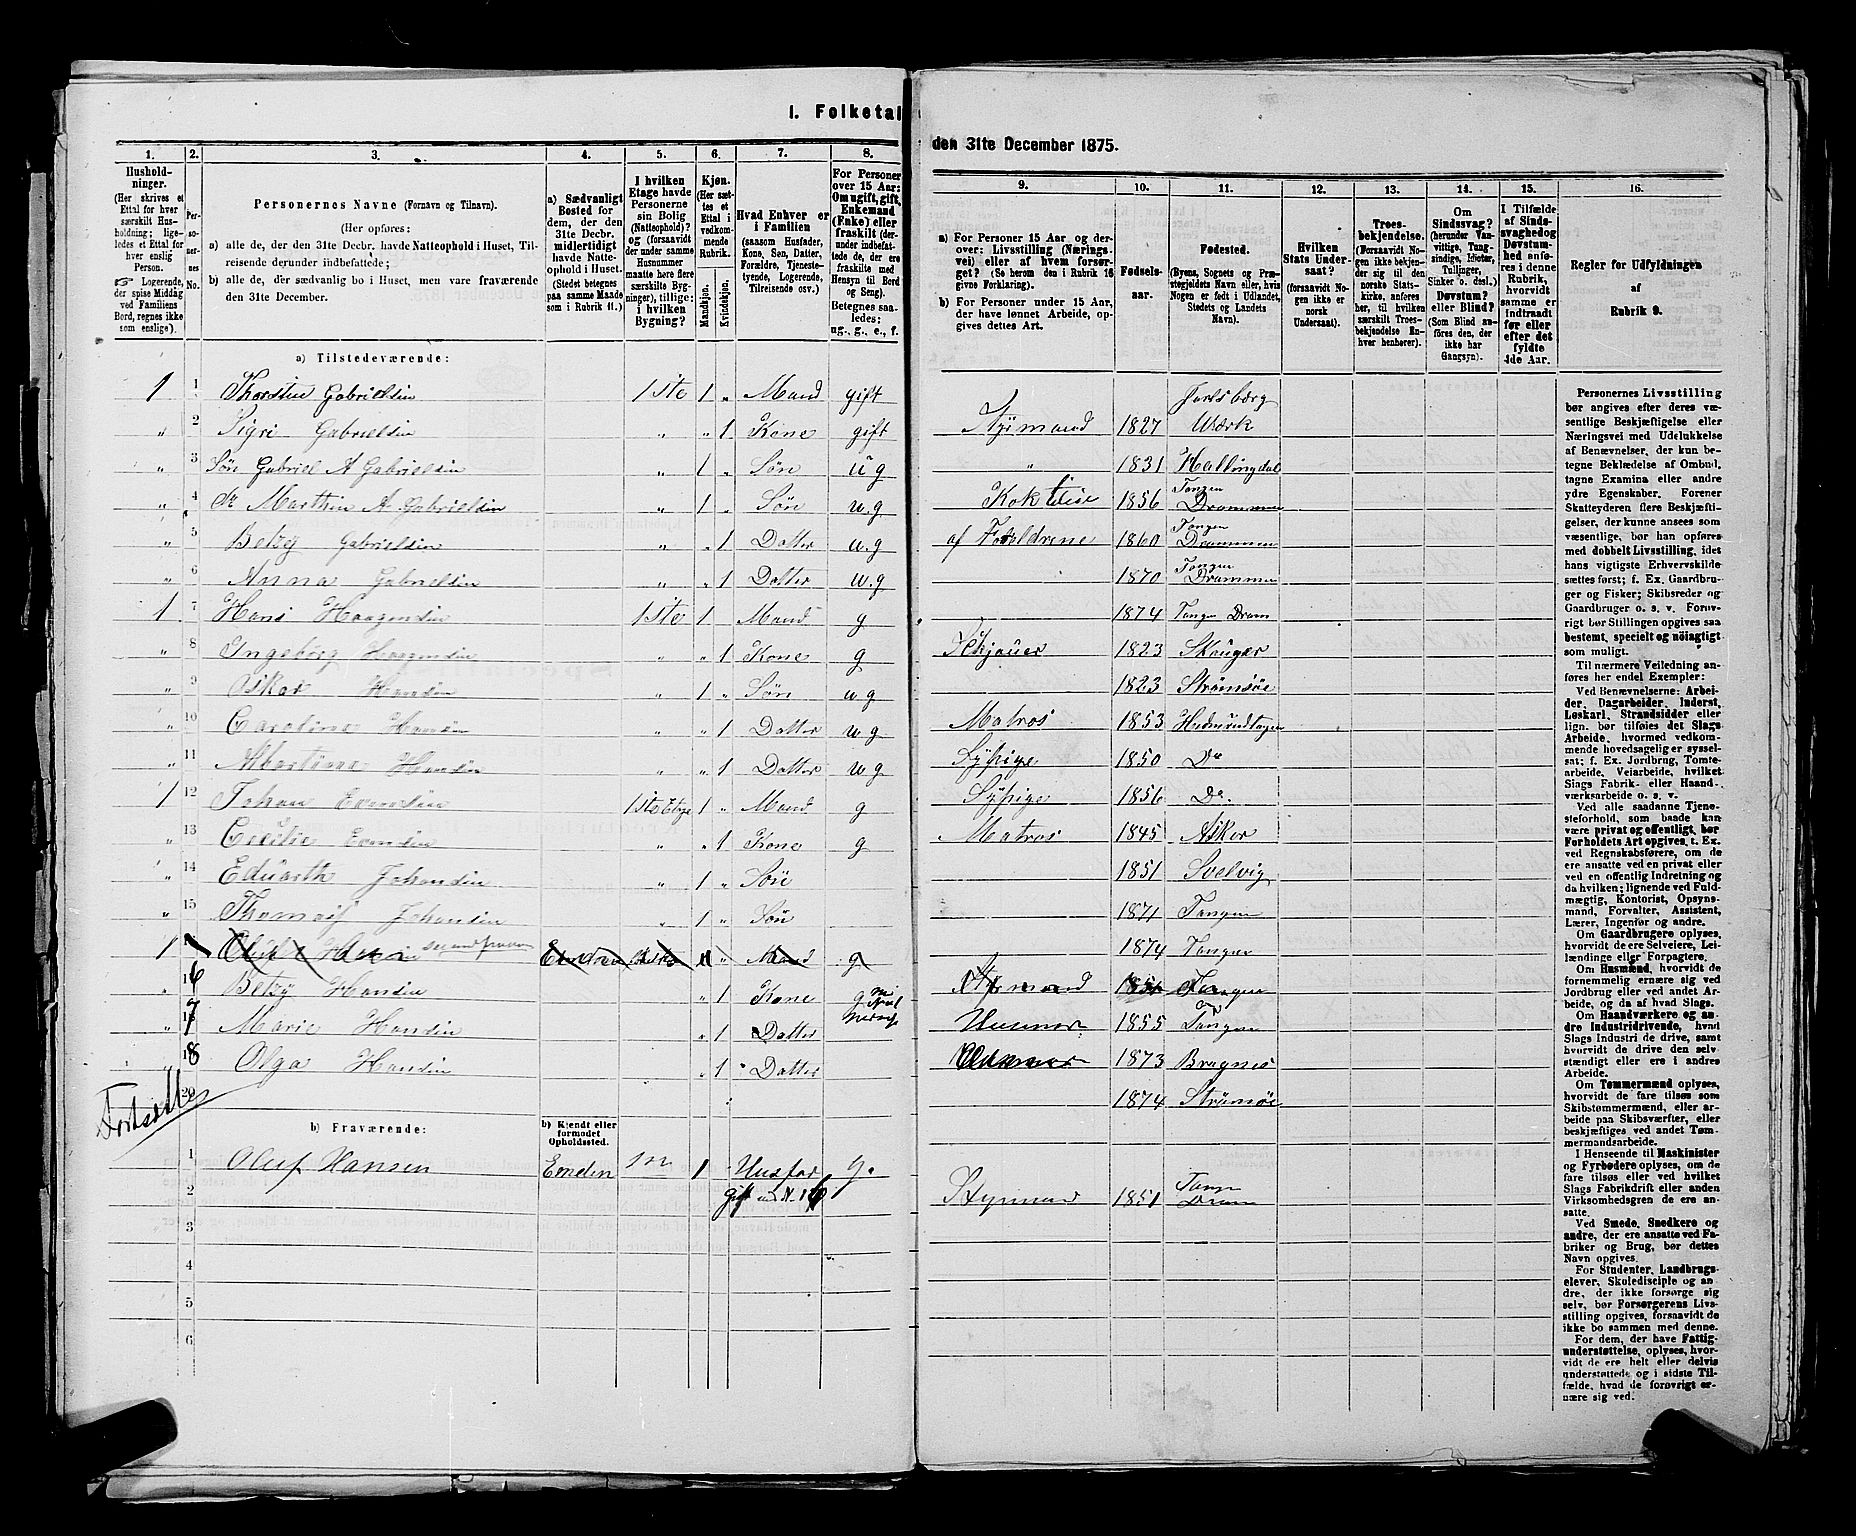 I. Folketal
den 31te December 1875.
1.
Hushold-
ninger.
(Her skrives et
Ettal for hver
særskilt Hus-
holdning; lige-
ledes et Ettal for
hver enslig
Person.
☞ Logerende,
der spise Middag
ved Familiens
Bord, regnes ikke
som enslige).
2.
Per-
so-
ner-
nes
No.
3.
Personernes Navne (Fornavn og Tilnavn).
(Her opføres:
a) alle de, der den 31te Decbr. havde Natteophold i Huset, Til-
reisende derunder indbefattede;
b) alle de, der sædvanlig bo i Huset, men vare fraværende
den 31te December.
4.
a) Sædvanligt
Bosted for
dem, der den
31te Decbr.
midlertidigt
havde Natte-
ophold i Huset.
(Stedet betegnes
paa samme Maade
som i Rubrik 11.)
5.
I hvilken
Etage havde
Personerne
sin Bolig
(Natteophold)?
og (forsaavidt
der under samme
Husnummer
maatte høre flere
særskilte Byg-
ninger), tillige:
i hvilken
Bygning?
6.
Kjøn.
(Her sæt-
tes et
Ettal i
vedkom-
mende
Rubrik.
Mandkjøn.
Kvindekjøn.
7.
Hvad Enhver er
i Familien
(saasom Husfader,
Kone, Søn, Datter,
Forældre, Tjeneste-
tyende, Logerende,
Tilreisende osv.)
8.
For Personer
over 15 Aar:
Om ugift, gift,
Enkemand
(Enke) eller
fraskilt (der-
under indbefat-
tede, der ere
fraskilte med
Hensyn til Bord
og Seng).
Betegnes saa-
ledes:
ug., g., e., f.
9.
a) For Personer 15 Aar og der-
over: Livsstilling (Nærings-
vei) eller af hvem forsør-
get? (Se herom den i Rubrik 16
givne Forklaring).
b) For Personer under 15 Aar,
der have lønnet Arbeide, op-
gives dettes Art.
10.
Fødsels-
aar.
11.
Fødested.
(Byens, Sognets og Præ-
stegjeldets Navn eller, hvis
Nogen er født i Udlandet,
Stedets og Landets
Navn).
12.
Hvilken
Stats Under-
saat?
(forsaavidt No-
gen ikke er
norsk
Undersaat).
13.
Troes-
bekjendelse.
(Forsaavidt No-
gen ikke bekjen-
der sig til den
norske Stats-
kirke, anføres
her, til hvilken
særskilt Troes-
bekjendelse En-
hver henhører).
14.
Om
Sindssvag?
(herunder Van-
vittige, Tung-
sindige, Idioter,
Tullinger,
Sinker o. desl.)
Døvstum?
eller Blind?
(Som Blind an-
føres den, der
ikke har
Gangsyn).
15.
I Tilfælde
af Sinds-
svaghed og
Døvstum-
hed anfø-
res i denne
Rubrik,
hvorvidt
samme er
indtraadt
før eller
efter det
fyldte
4de Aar.
16.
Regler for Udfyldningen
af
Rubrik 9.
a) Tilstedeværende:
1 1 Thorstin Gabrielsin 1ste 1 „ Mand gift
„ 2 Sigri Gabrielsin „ „ 1 Kone gift
„ 3 Søn Gabriel A Gabrielsin „ 1 „ Søn ug
„ 4 Marthin A Gabrielsin „ 1 Søn u.g
„ 5 Betzy Gabrielsin „ „ 1 Datter u.g
„ 6 Anna Gabrielsin „ „ 1 Datter u.g
1 7 Hans Haagensin 1ste 1 „ Mand g
„ 8 Ingeborg Haagensin „ „ 1 Kone g
„ 9 Oskar Hansin „ 1 „ Søn ug
„ 10 Carolina Hansin „ „ 1 Datter u g
„ 11 Albertine Hansin „ „ 1 Datter u g
1 12 Johan Evensin 1ste Etage 1 „ Mand g
„ 13 Cecilie Evensin „ „ 1 Kone g
„ 14 Eduarth Johansin „ 1 „ Søn
„ 15 Thomas Johansin „ 1 „ Søn
1 Oluf Hansin Emden 1 „ Mand g
„ 16 Betzy Hansin „ 1 Kone g
„ 17 Marie Hansin „ 1 Datter
„ 18 Olga Hansin „ 1 Datter
20
Fortsættes
Jarlsberg
Styrmand 1827 Værk
„ 1831 Hallingdal
Kok 1856 Tangen Drammen
af Forældrene 1860 Tangen Drammen
1870 Tangen Drammen
1874 Tangen Dram
Skjøuer 1823 Skouger
1823 Strømsøe
Matros 1853 Hedensundtagen
Sypige 1850 Do
Sypige 1856 Do.
Matros 1845 Asker
1851 Svelvig
1871 Tangen
1874 Tangen
Styrmand 1851 Tangen
Husmor 1855 Tangen
1873 Bragnes
1874 Strømsøe
b) Fraværende:
b) Kjendt eller
formodet
Opholdssted.
1 Oluf Hansen Emden 1 Husfar g.
gift m N. 16
Styrmand 1851 Tange Dram
2
3
4
5
6
Personernes Livsstilling
bør angives efter deres væ-
sentlige Beskjæftigelse eller
Næringsvei med Udelukkelse
af Benævnelser, der kun be-
tegne Beklædelse af Ombud,
tagne Examina eller andre
ydre Egenskaber. Forener
Skatteyderen flere Beskjæfti-
gelser, der kunne ansees som
væsentlige, bør han opføres
med dobbelt Livsstilling, idet
hans vigtigste Erhvervskilde
sættes først; f. Ex. Gaardbru-
ger og Fisker; Skibsreder og
Gaardbruger o. s. v. Forøv-
rigt bør Stillingen opgives saa
bestemt, specielt og nøiagtigt
som muligt.
Til nærmere Veiledning an-
føres her endel Exempler:
Ved Benævnelserne: Arbei-
der, Dagarbeider, Inderst,
Løskarl, Strandsidder eller
lign. bør tilføies det Slags
Arbeide, hvormed vedkom-
mende hovedsagelig er syssel-
sat; f. Ex. Jordbrug, Tomte-
arbeide, Veiarbeide, hvilket
Slags Fabrik- eller Haand-
værksarbeide o. s. v.
Ved alle saadanne Tjene-
steforhold, som baade kan
være privat og offentligt, bør
Forholdets Art opgives, t. Ex.
ved Regnskabsførere, om de
ere ansatte ved en privat eller
ved en offentlig Indretning og
da hvilken; lignende ved Fuld-
mægtig, Kontorist, Opsyns-
mand, Forvalter, Assistent,
Lærer, Ingeniør og andre.
Om Gaardbrugere oplyses,
hvorvidt de ere Selveiere, Lei-
lændinge eller Forpagtere.
Om Husmænd, hvorvidt de
fornemmelig ernære sig ved
Jordbrug eller ved andet Ar-
beide, og da af hvad Slags.
Om Haandværkere og an-
dre Industridrivende, hvad
Slags Industri de drive, samt
hvorvidt de drive den selv-
stændigt eller ere i andres
Arbeide.
Om Tømmermænd oplyses,
hvorvidt de fare tilsøs som
Skibstømmermænd, eller ar-
beide paa Skibsværfter, eller
beskjæftiges ved andet Tøm-
mermandsarbeide.
I Henseende til Maskinister
og Fyrbødere oplyses, om de
fare tilsøs eller ved hvilket
Slags Fabrikdrift eller anden
Virksomhedsgren de ere an-
satte.
Ved Smede, Snedkere og
andre, der ere ansatte ved Fa-
briker og Brug, bør dettes
Navn opgives.
For Studenter, Landbrugs-
elever, Skoledisciple og an-
dre, der ikke forsørge sig
selv, bør Forsørgerens Livs-
stilling opgives, forsaavidt de
ikke bo sammen med denne.
For dem, der have Fattig-
understøttelse, oplyses, hvor-
vidt de ere helt eller delvis
understøttede og i sidste Til-
fælde, hvad de forøvrigt er-
nære sig ved.